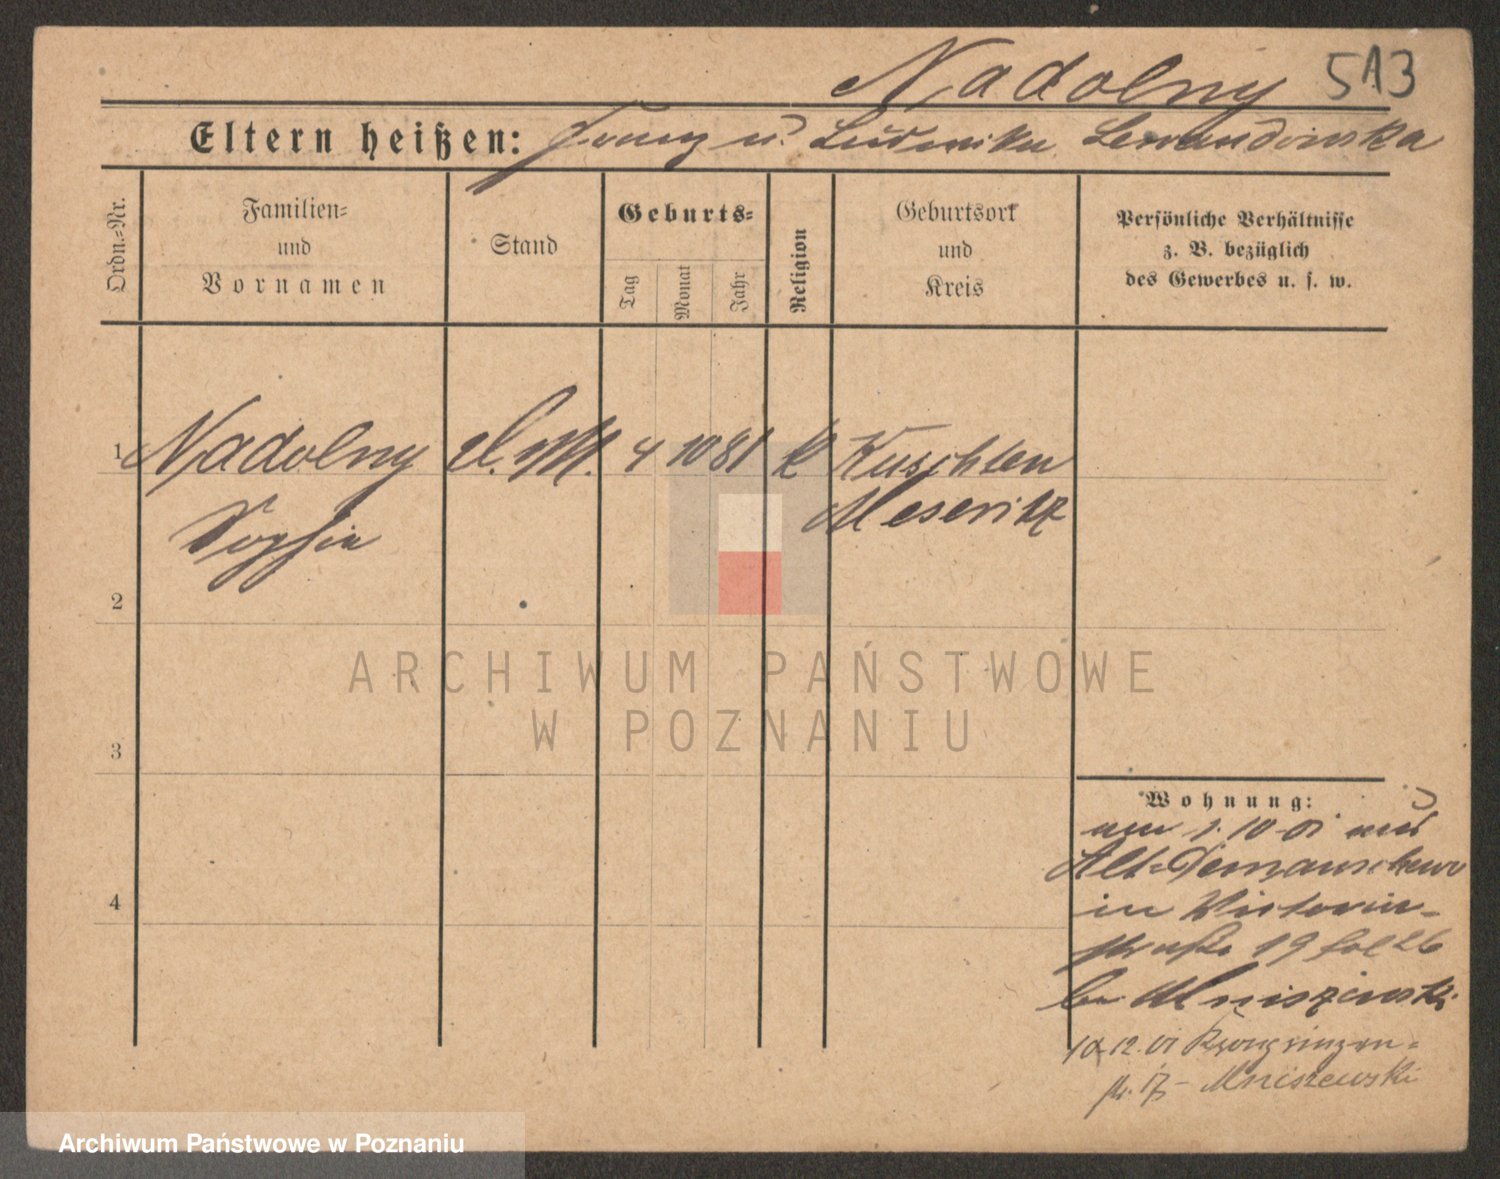 Nadolny 513
Eltern heißen: Franz u. Ludowika Lewandowska
Ordn.=Nr.
Familien=
und
Vornamen
Stand
Geburts=
Tag
Monat
Jahr
Religion
Geburtsort
und
Kreis
Persönliche Verhältnisse
z. B. bezüglich
des Gewerbes u. s. w.
1 Nadolny d. M. 4 10 81 k Kuschten
Sophia Meseritz
2
3
4
Wohnung:
1. 10 01 aus
Alt-Demanschewo
in Victoria-
straße 19 bei
bei Mniszewski
10.12.01 Kronprinzen=
str. Mniszewski
ARCHIWUM PAŃSTWOWE
W POZNANIU
Archiwum Państwowe w Poznaniu